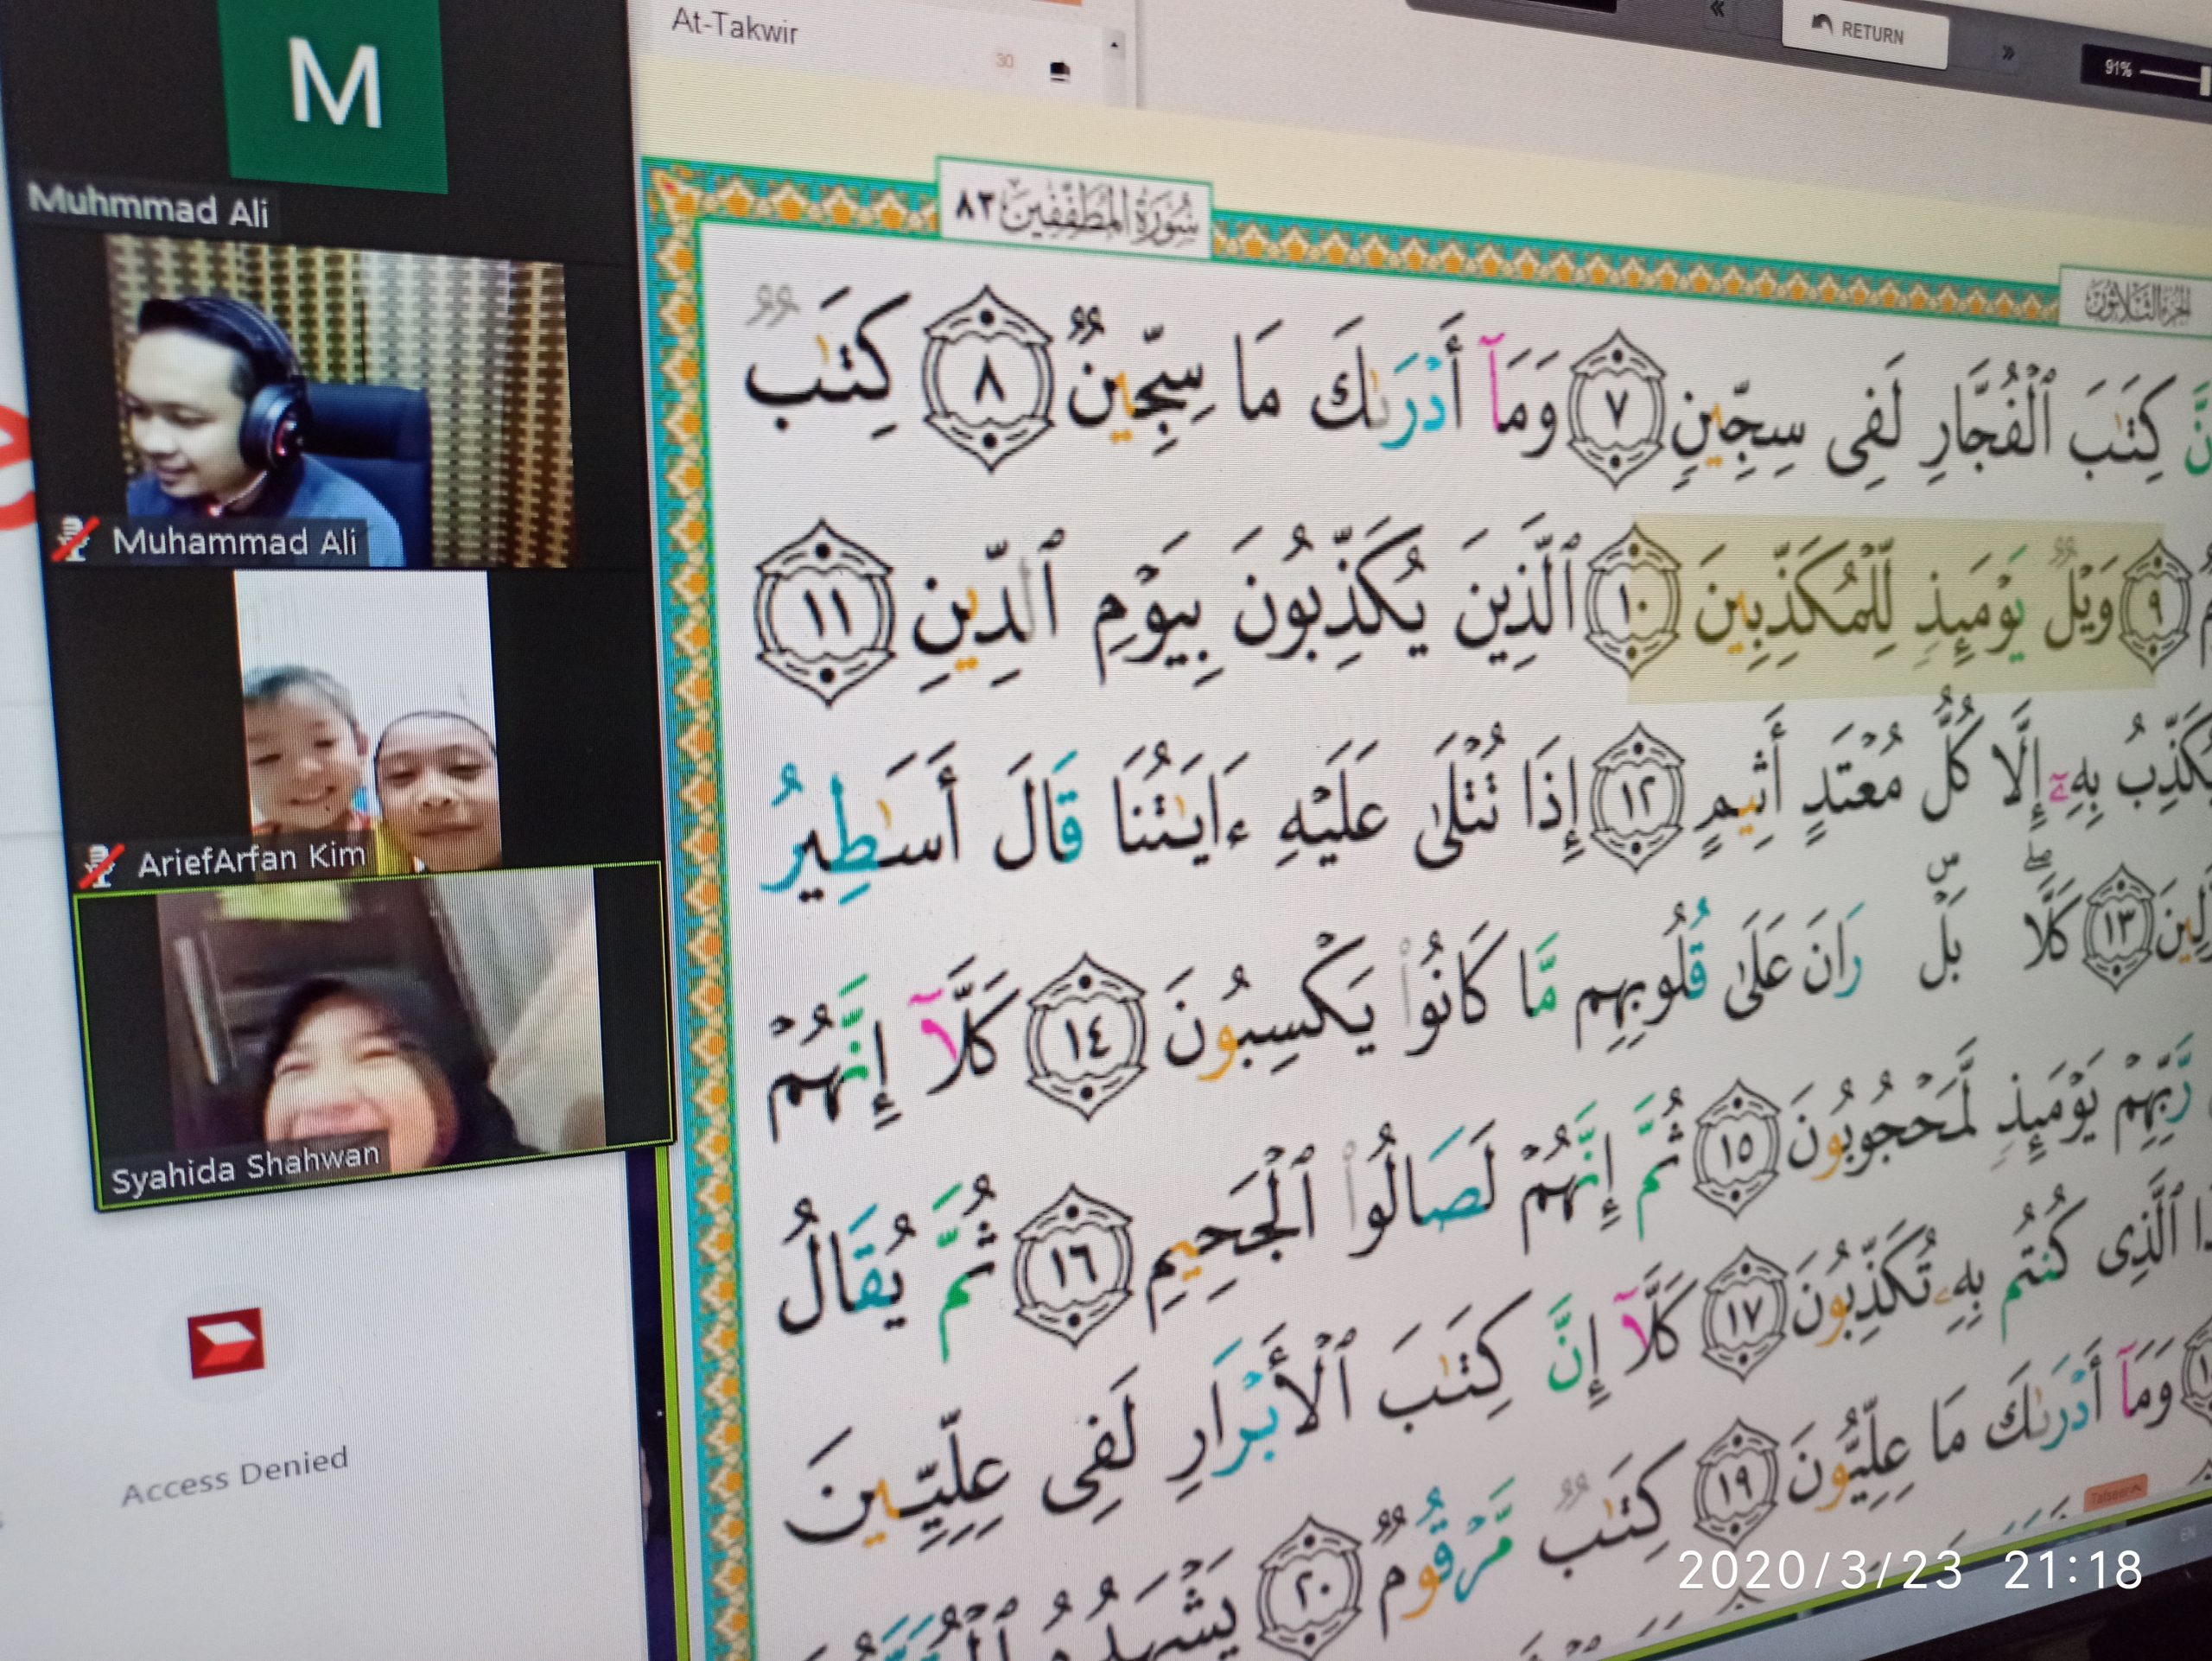 M
Muhmmad Ali
Muhammad Ali
AriefArfan Kim
Syahida Shahwan
Access Denied
At-Takwir
30
RETURN
91%
سُورَةُ المُطَفِّفِين ٨٣
الجزء الثلاثون
نَّ كِتَٰبَ ٱلْفُجَّارِ لَفِى سِجِّينٍ ٧ وَمَآ أَدْرَىٰكَ مَا سِجِّينٌ ٨ كِتَٰبٌ
٩ وَيْلٌ يَوْمَئِذٍ لِّلْمُكَذِّبِينَ ١٠ ٱلَّذِينَ يُكَذِّبُونَ بِيَوْمِ ٱلدِّينِ ١١
يُكَذِّبُ بِهِۦٓ إِلَّا كُلُّ مُعْتَدٍ أَثِيمٍ ١٢ إِذَا تُتْلَىٰ عَلَيْهِ ءَايَٰتُنَا قَالَ أَسَٰطِيرُ
١٣ كَلَّا ۖ بَلْ ۜ رَانَ عَلَىٰ قُلُوبِهِم مَّا كَانُوا۟ يَكْسِبُونَ ١٤ كَلَّآ إِنَّهُمْ
رَّبِّهِمْ يَوْمَئِذٍ لَّمَحْجُوبُونَ ١٥ ثُمَّ إِنَّهُمْ لَصَالُوا۟ ٱلْجَحِيمِ ١٦ ثُمَّ يُقَالُ
ٱلَّذِى كُنتُم بِهِۦ تُكَذِّبُونَ ١٧ كَلَّآ إِنَّ كِتَٰبَ ٱلْأَبْرَارِ لَفِى عِلِّيِّينَ
وَمَآ أَدْرَىٰكَ مَا عِلِّيُّونَ ١٩ كِتَٰبٌ مَّرْقُومٌ ٢٠ يَشْهَدُهُ
Tafseer
EN
2020/3/23 21:18